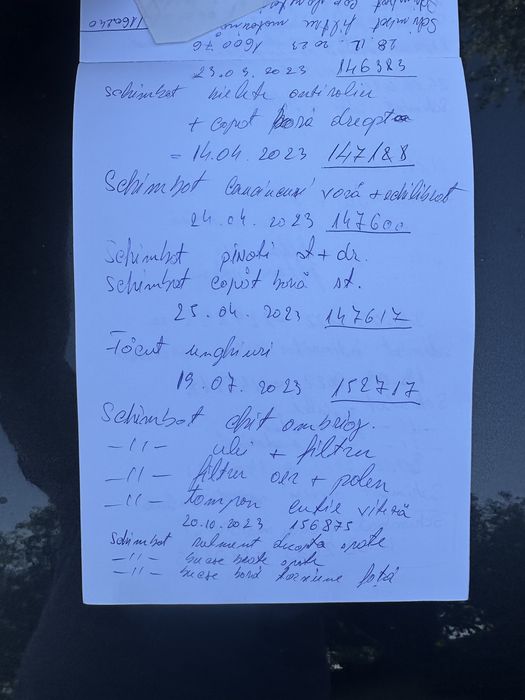 28.12.2023 160076
Schimbat filtru motorină
23.03.2023 146383
Schimbat bielete antiruliu
+ capăt bară dreapta
= 14.04.2023 147188
Schimbat cauciucuri vară + echilibrat
24.04.2023 147600
Schimbat pivoti st + dr.
Schimbat capăt bară st.
25.04.2023 147617
Făcut unghiuri
19.07.2023 152717
Schimbat chit ambriaj.
—//— ulei + filtru
—//— filtru aer + polen
—//— tampon cutie viteză
20.10.2023 156875
Schimbat rulment dreapta spate
—//— bucse brate spate
—//— bucse bară torsiune față